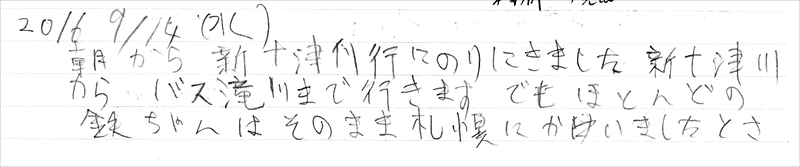 2016 9/14 (水)
朝から 新十津川行にのりにきました 新十津川
から バス滝川まで行きます でもほとんどの
鉄ちゃんはそのまま札幌にかいましたとさ